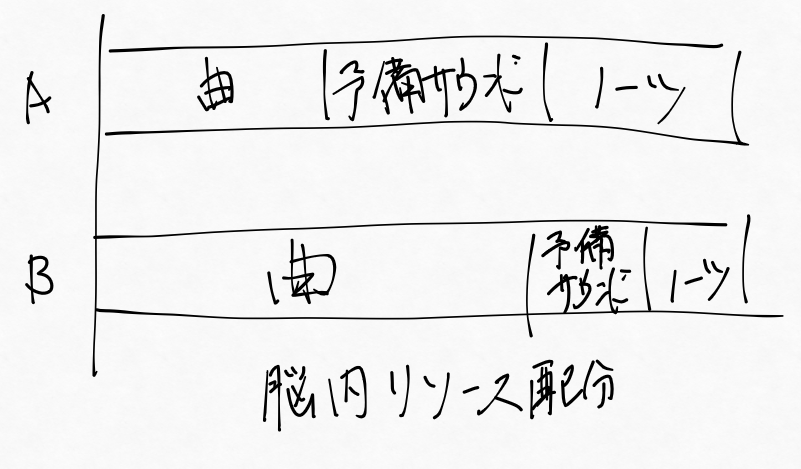 A 曲 予備サウンド ノーツ
B 曲 予備
サウンド ノーツ
脳内リソース配分